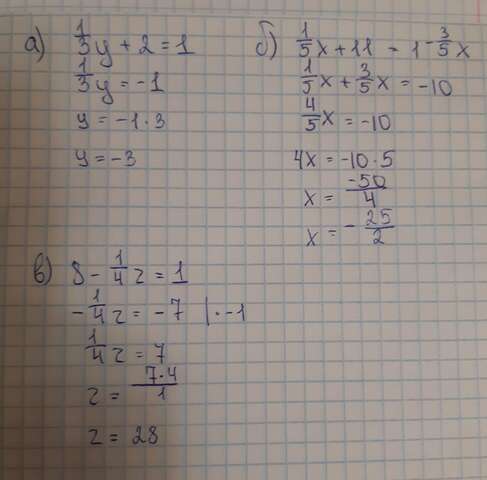 а) 1/3 y + 2 = 1
1/3 y = -1
y = -1·3
y = -3
б) 1/5 x + 11 - 1 - 3/5 x
1/5 x + 3/5 x = -10
4/5 x = -10
4x = -10·5
x = -50/4
x = -25/2
в) 8 - 1/4 z = 1
- 1/4 z = -7 |·-1
1/4 z = 7
z = 7·4/1
z = 28